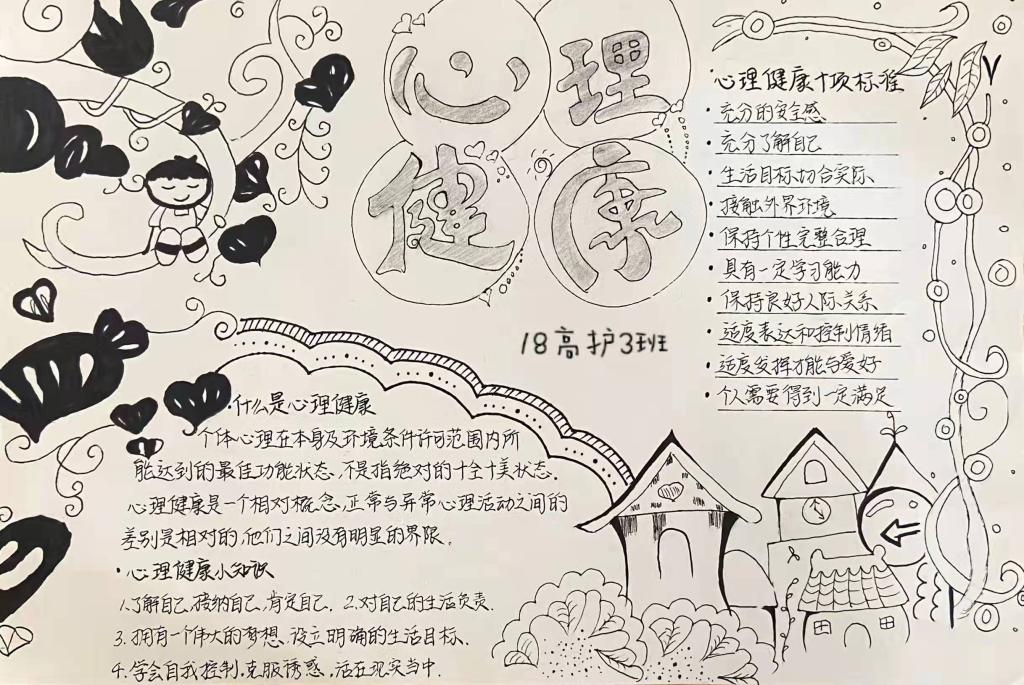 心理
健康
18高护3班
·心理健康十项标准
·充分的安全感
·充分了解自己
·生活目标切合实际
·接触外界环境
·保持个性完整合理
·具有一定学习能力
·保持良好人际关系
·适度表达和控制情绪
·适度发挥才能与爱好
·个人需要得到一定满足
·什么是心理健康
个体心理在本身及环境条件许可范围内所
能达到的最佳功能状态,不是指绝对的十全十美状态.
心理健康是一个相对概念,正常与异常心理活动之间的
差别是相对的,他们之间没有明显的界限。
·心理健康小知识
1.了解自己,接纳自己,肯定自己. 2.对自己的生活负责.
3.拥有一个伟大的梦想、设立明确的生活目标.
4.学会自我控制,克服诱惑,活在现实当中.